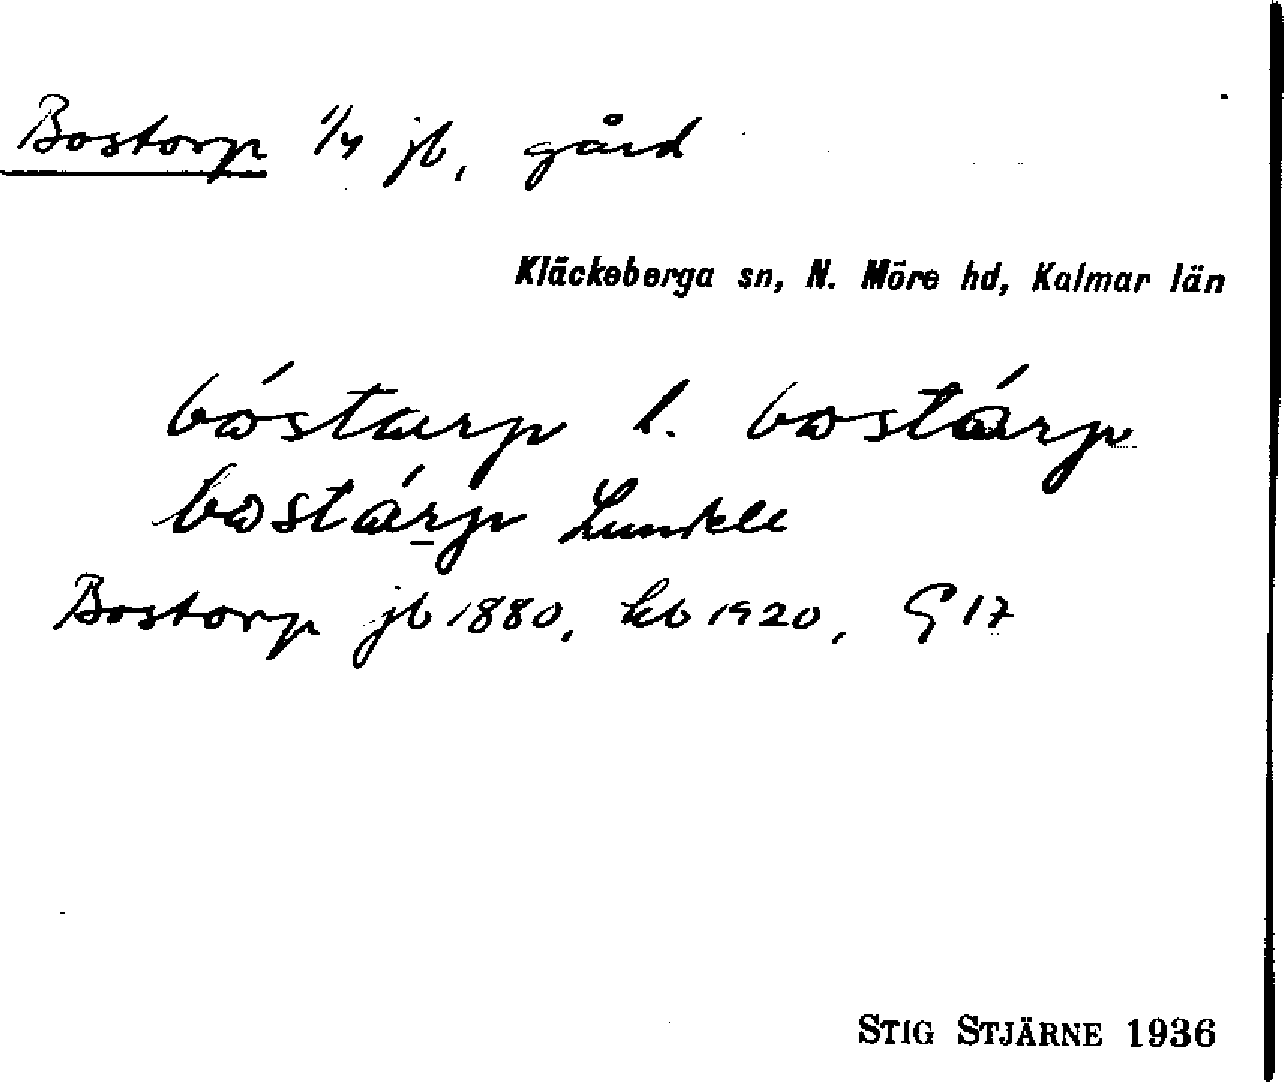 Bostorp 1/4 jb, gård
Kläckeberga sn, N. Möre hd, Kalmar län
bóstarp l. bostárp
bostárp
Bostorp jb 1880, kb 1920, G 17
STIG STJÄRNE 1936